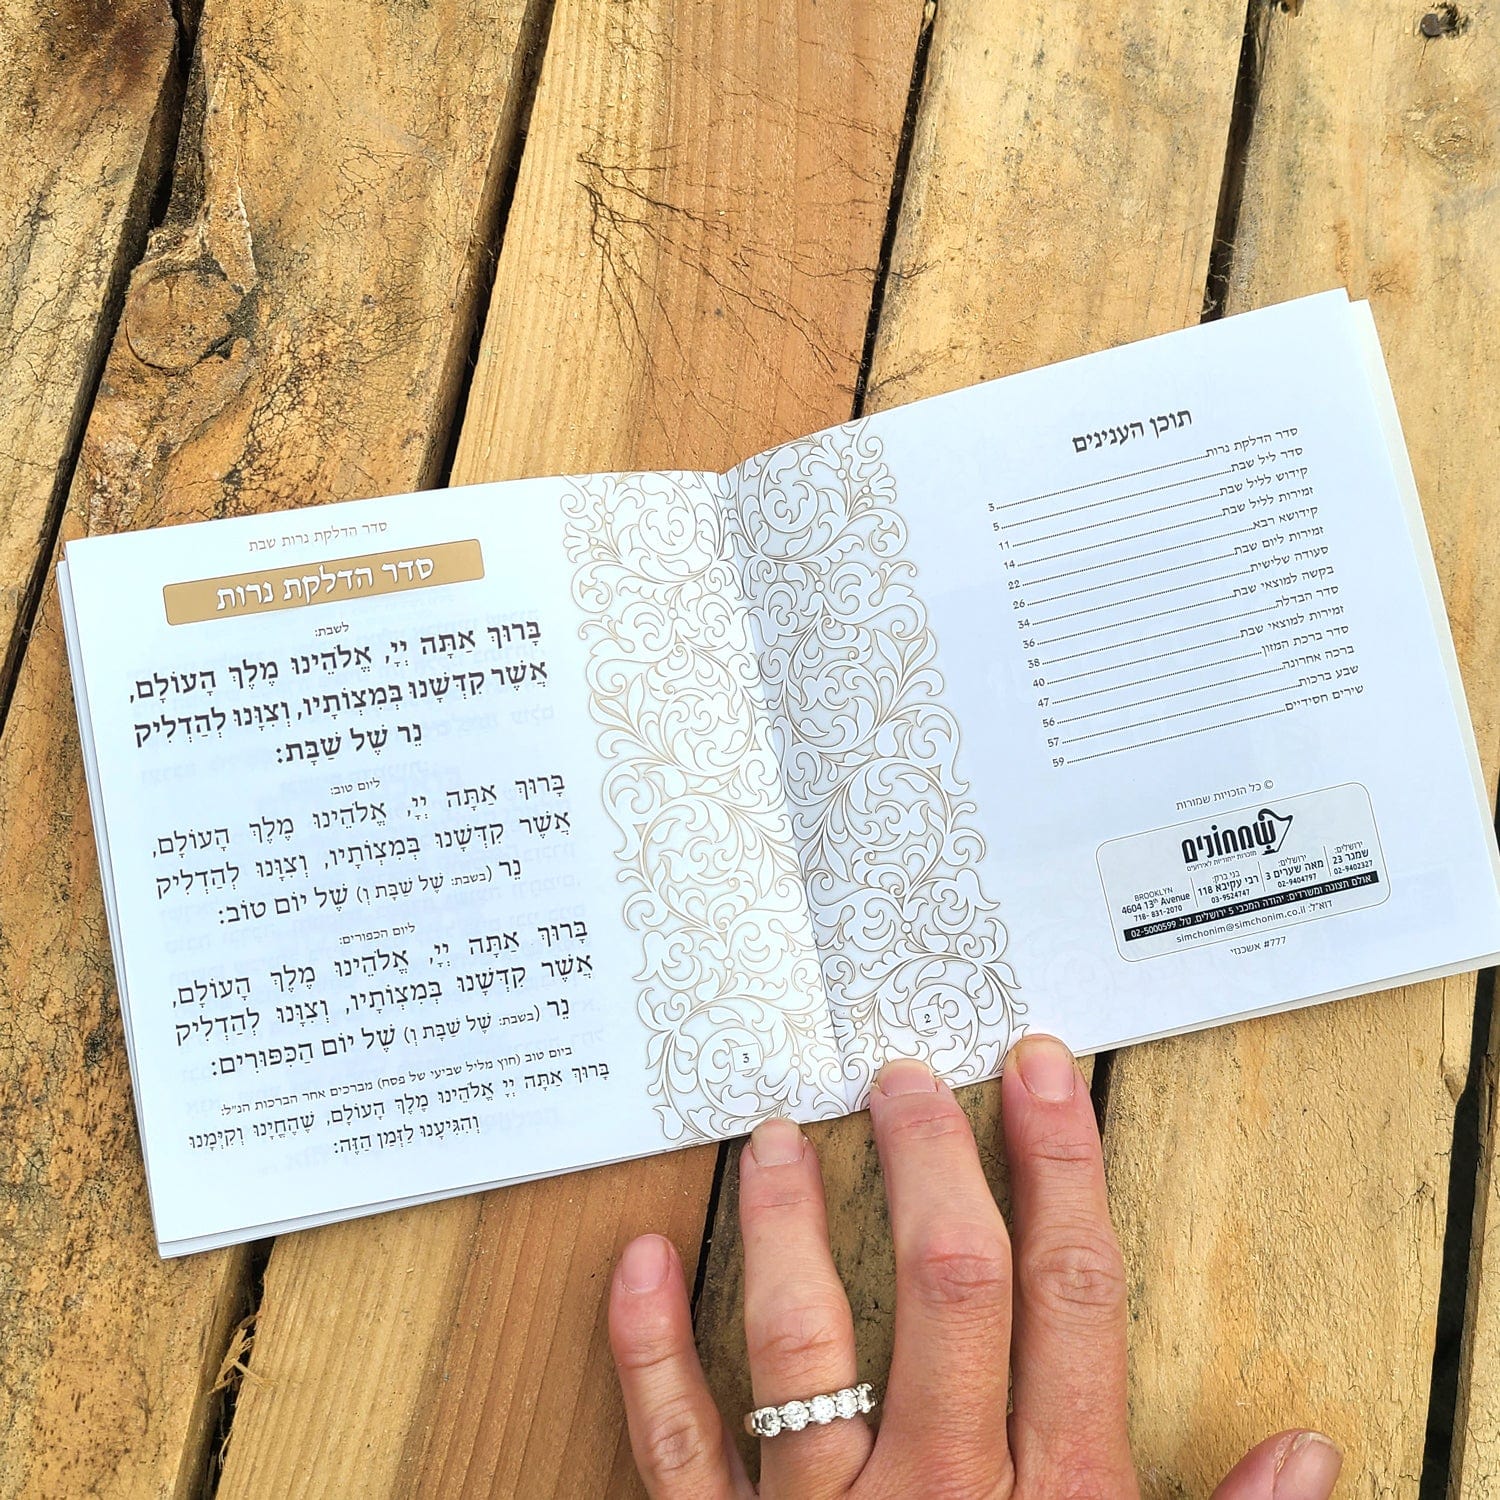 תוכן הענינים
סדר הדלקת נרות 3
סדר ליל שבת 5
קידוש לליל שבת 11
זמירות לליל שבת 14
קידושא רבא 22
זמירות ליום שבת 26
סעודה שלישית 34
בקשה למוצאי שבת 36
סדר הבדלה 38
זמירות למוצאי שבת 40
סדר ברכת המזון 47
ברכה אחרונה 56
שבע ברכות 57
שירים חסידיים 59
© כל הזכויות שמורות
שמחונים
מזכרות ייחודיות לאירועים
ירושלים:
שמגר 23
02-9402327
ירושלים:
מאה שערים 3
02-9404797
בני ברק:
רבי עקיבא 118
03-9524747
BROOKLYN
4604 13th Avenue
718- 831-2070
אולם תצוגה ומשרדים: יהודה המכבי 5 ירושלים. טל. 02-5000599
דוא"ל: simchonim@simchonim.co.il
#777 אשכנזי
2
סדר הדלקת נרות שבת
סדר הדלקת נרות
לשבת:
בָּרוּךְ אַתָּה יְיָ, אֱלֹהֵינוּ מֶלֶךְ הָעוֹלָם,
אֲשֶׁר קִדְּשָׁנוּ בְּמִצְוֹתָיו, וְצִוָּנוּ לְהַדְלִיק
נֵר שֶׁל שַׁבָּת:
ליום טוב:
בָּרוּךְ אַתָּה יְיָ, אֱלֹהֵינוּ מֶלֶךְ הָעוֹלָם,
אֲשֶׁר קִדְּשָׁנוּ בְּמִצְוֹתָיו, וְצִוָּנוּ לְהַדְלִיק
נֵר (בשבת: שֶׁל שַׁבָּת וְ) שֶׁל יוֹם טוֹב:
ליום הכפורים:
בָּרוּךְ אַתָּה יְיָ, אֱלֹהֵינוּ מֶלֶךְ הָעוֹלָם,
אֲשֶׁר קִדְּשָׁנוּ בְּמִצְוֹתָיו, וְצִוָּנוּ לְהַדְלִיק
נֵר (בשבת: שֶׁל שַׁבָּת וְ) שֶׁל יוֹם הַכִּפּוּרִים:
ביום טוב (חוץ מליל שביעי של פסח) מברכים אחר הברכות הנ"ל:
בָּרוּךְ אַתָּה יְיָ אֱלֹהֵינוּ מֶלֶךְ הָעוֹלָם, שֶׁהֶחֱיָנוּ וְקִיְּמָנוּ
וְהִגִּיעָנוּ לַזְּמַן הַזֶּה:
3